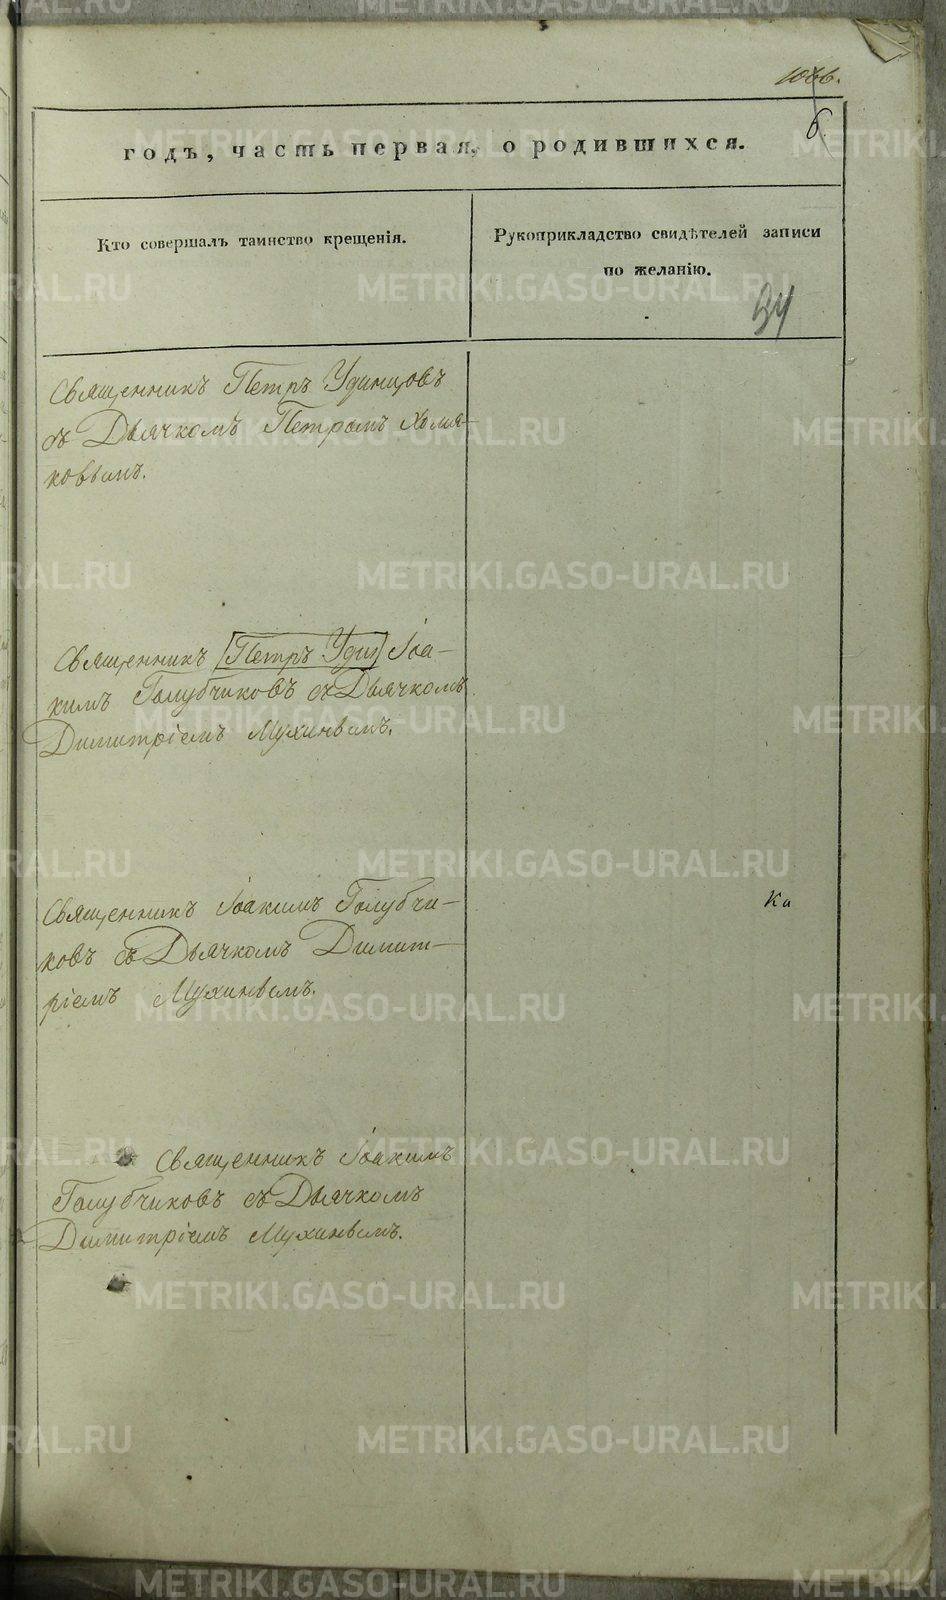 6.
годъ, часть первая, о родившихся.
Кто совершалъ таинство крещенія.
Рукоприкладство свидѣтелей записи
по желанію.
94
Священникъ Петръ Удинцовъ
съ Дьячкомъ Петромъ Холмя-
ковымъ.
Священникъ [Петръ Удин] Іоа-
кимъ Голубчиковъ съ Дьячкомъ
Димитріемъ Мухинымъ.
Священникъ Іоакимъ Голубчи-
ковъ съ Дьячкомъ Димит-
ріемъ Мухинымъ.
Ка
Священникъ Іоакимъ
Голубчиковъ съ Дьячкомъ
Димитріемъ Мухинымъ.
METRIKI.GASO-URAL.RU